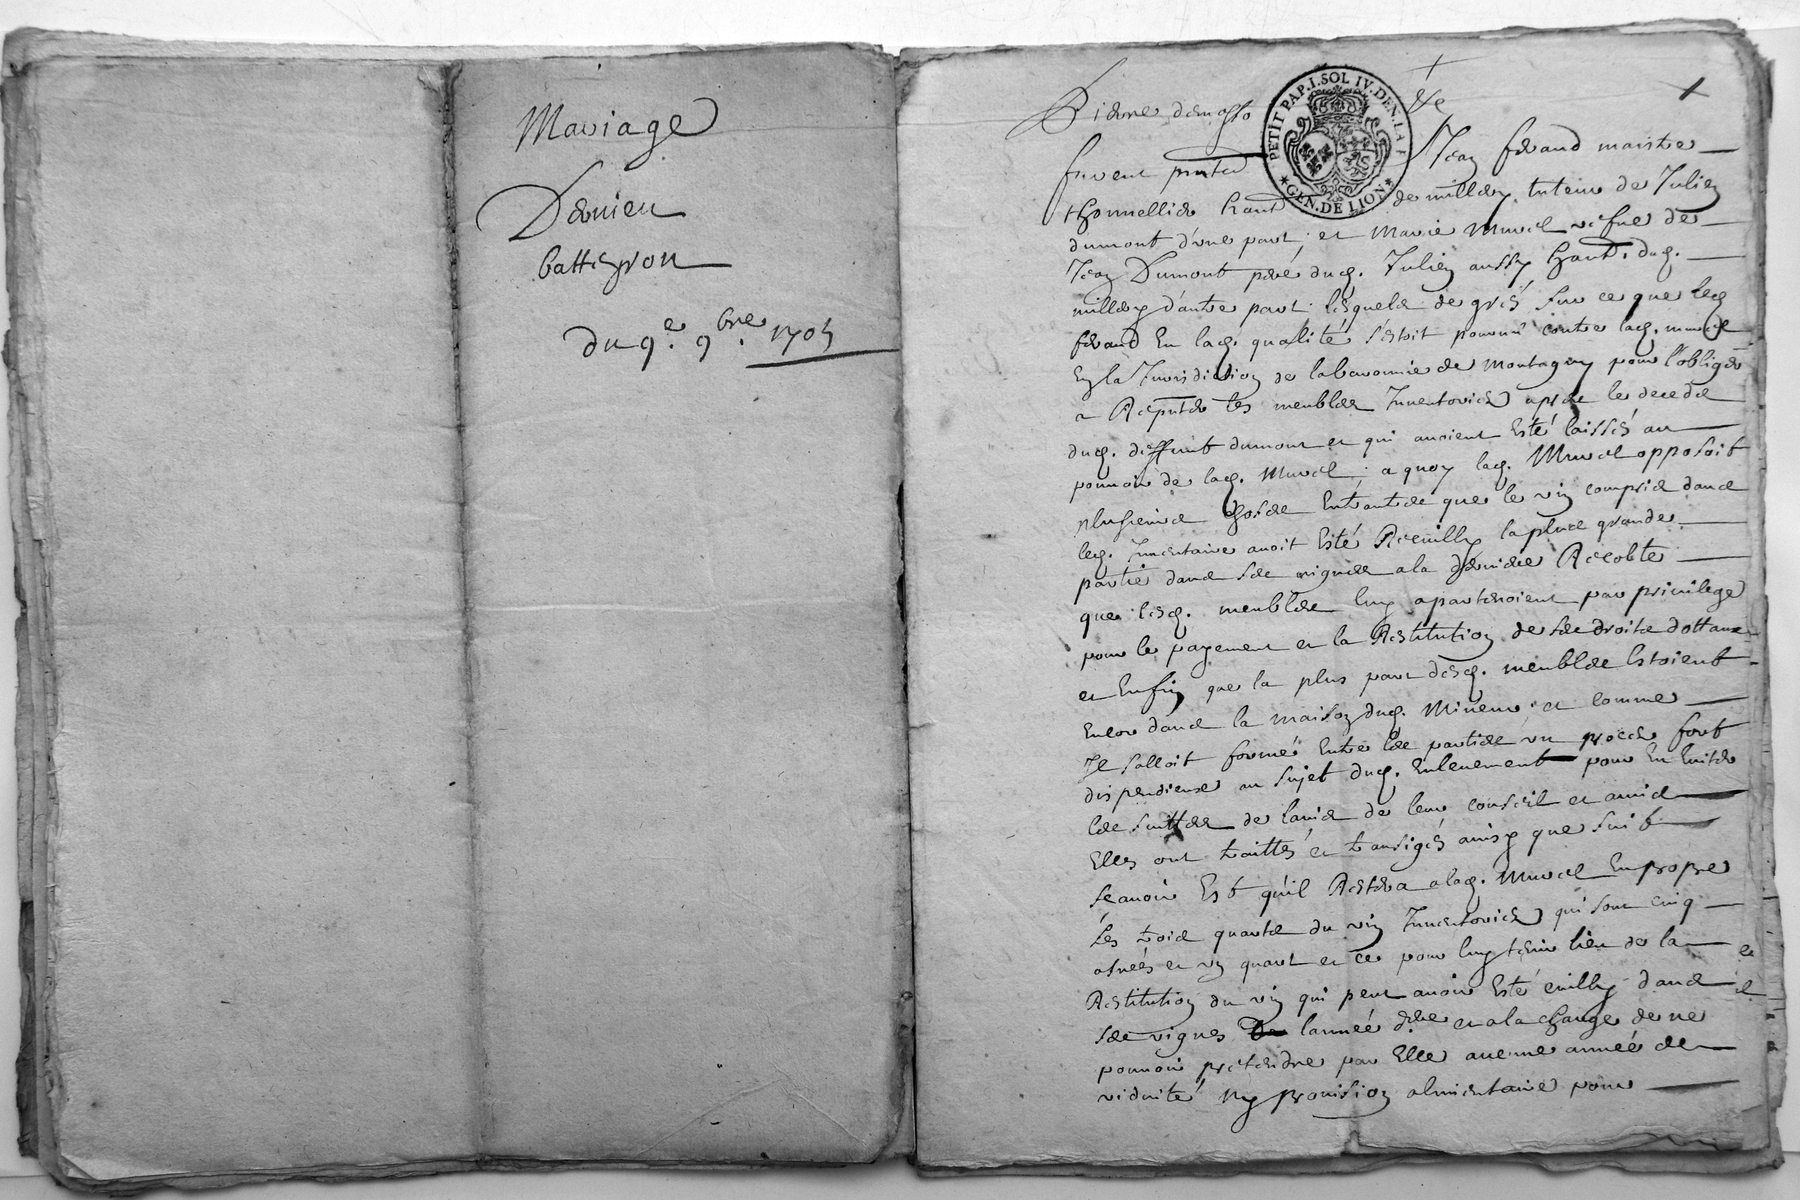 Mariage
Dernieu
battezron
du 9e. 9bre. 1705
PETIT PAP. I. SOL IV. DEN. LA F
GEN. DE LION
furent Jean ferand maistre
thonnellier hant de millery tuteur de Julien
dumont d'vne part, et Marie Murel vefue de
Jean Dumont pere dud. Julien aussy hant. dud.
millery d'autre part lesquels de gré sur ce que led
ferand En lad. qualité s'estoit pourueu contre lad. murel
En la Jurisdiction de la baronnie de montagny pour l'obliger
a Represter les meubles Inuentoriés apres le deceds
dud. deffunt dumont et qui auoient Esté laissés au
pouuoir de lad. Murel, a quoy lad. Murel opposoit
plusieurs choses Entrautres que le vin compris dans
led. Inuentaire auoit Esté Recuilly la plus grande
partie dans ses vignes a la derniere Recolte
que lesd. meubles luy apartenoient par priuilege
pour le payement et la Restitution de ses droits dottaux
et Enfin que la plus part desd. meubles Estoient
Encor dans la maison dud. Mineur et comme
Il salloit former Entre les parties vn proces fort
dispendieux au sujet dud. Enleuement pour En Euiter
les suittes de lauis de leur conseil et amis
Elles ont traittés et transigés ainsy que suit
scauoir Est qu'il Restera a lad. Murel En propre
les trois quarts du vin Inuentoriés qui sont cinq
asnées et vn quart et ce pour luy tenir lieu de la
Restitution du vin qui peut auoir Esté cuilly dans
ses vignes lannée dre et a la charge de ne
pouuoir pretendre par Elle aucune année de
viduité ny prouision alimentaire pour